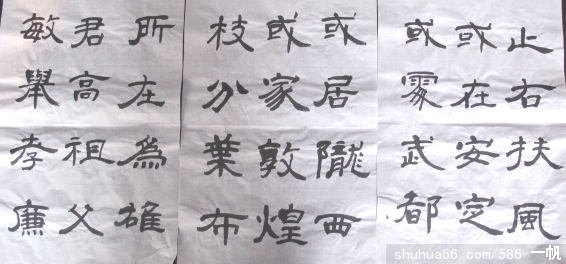 止右扶風
或在安定
或處武都
或居隴西
或家敦煌
枝分葉布
所在為雄
君高祖父
敏舉孝廉
shuhua66.com/586 一帆